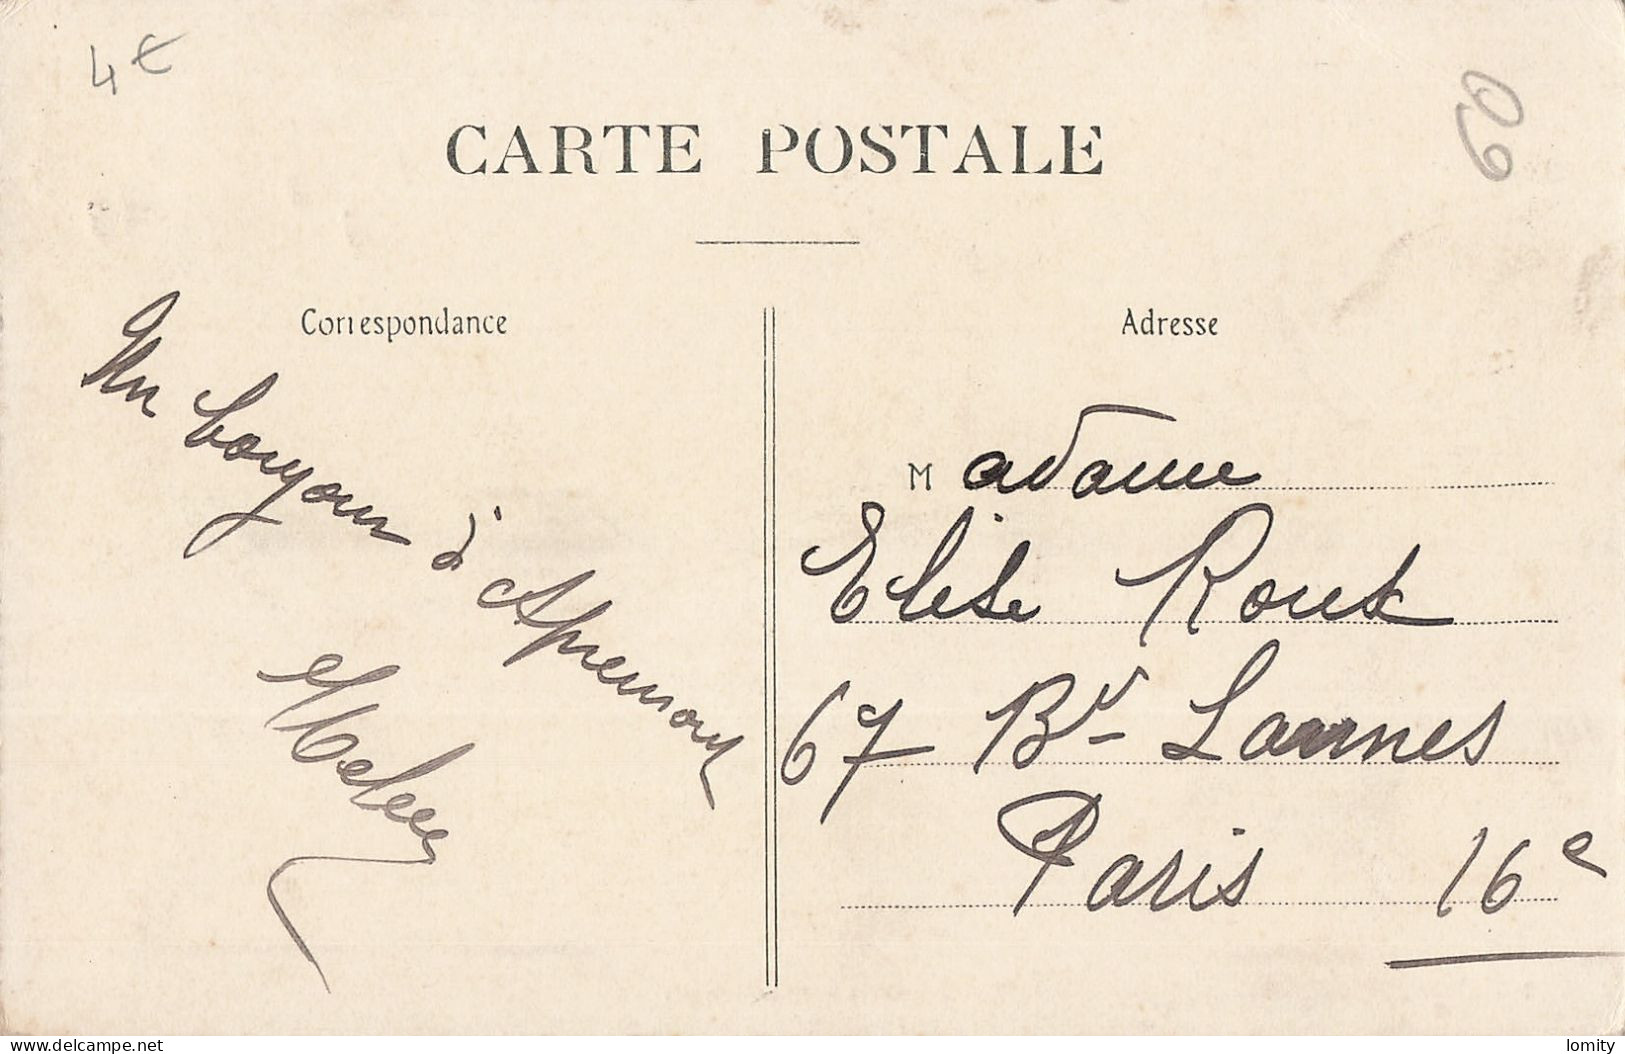 4€
CARTE POSTALE
Correspondance
Adresse
Un bonjour
d'Apremont
Madame
Elise Roux
67 Bd Lannes
Paris 16e
www.delcampe.net
lomity